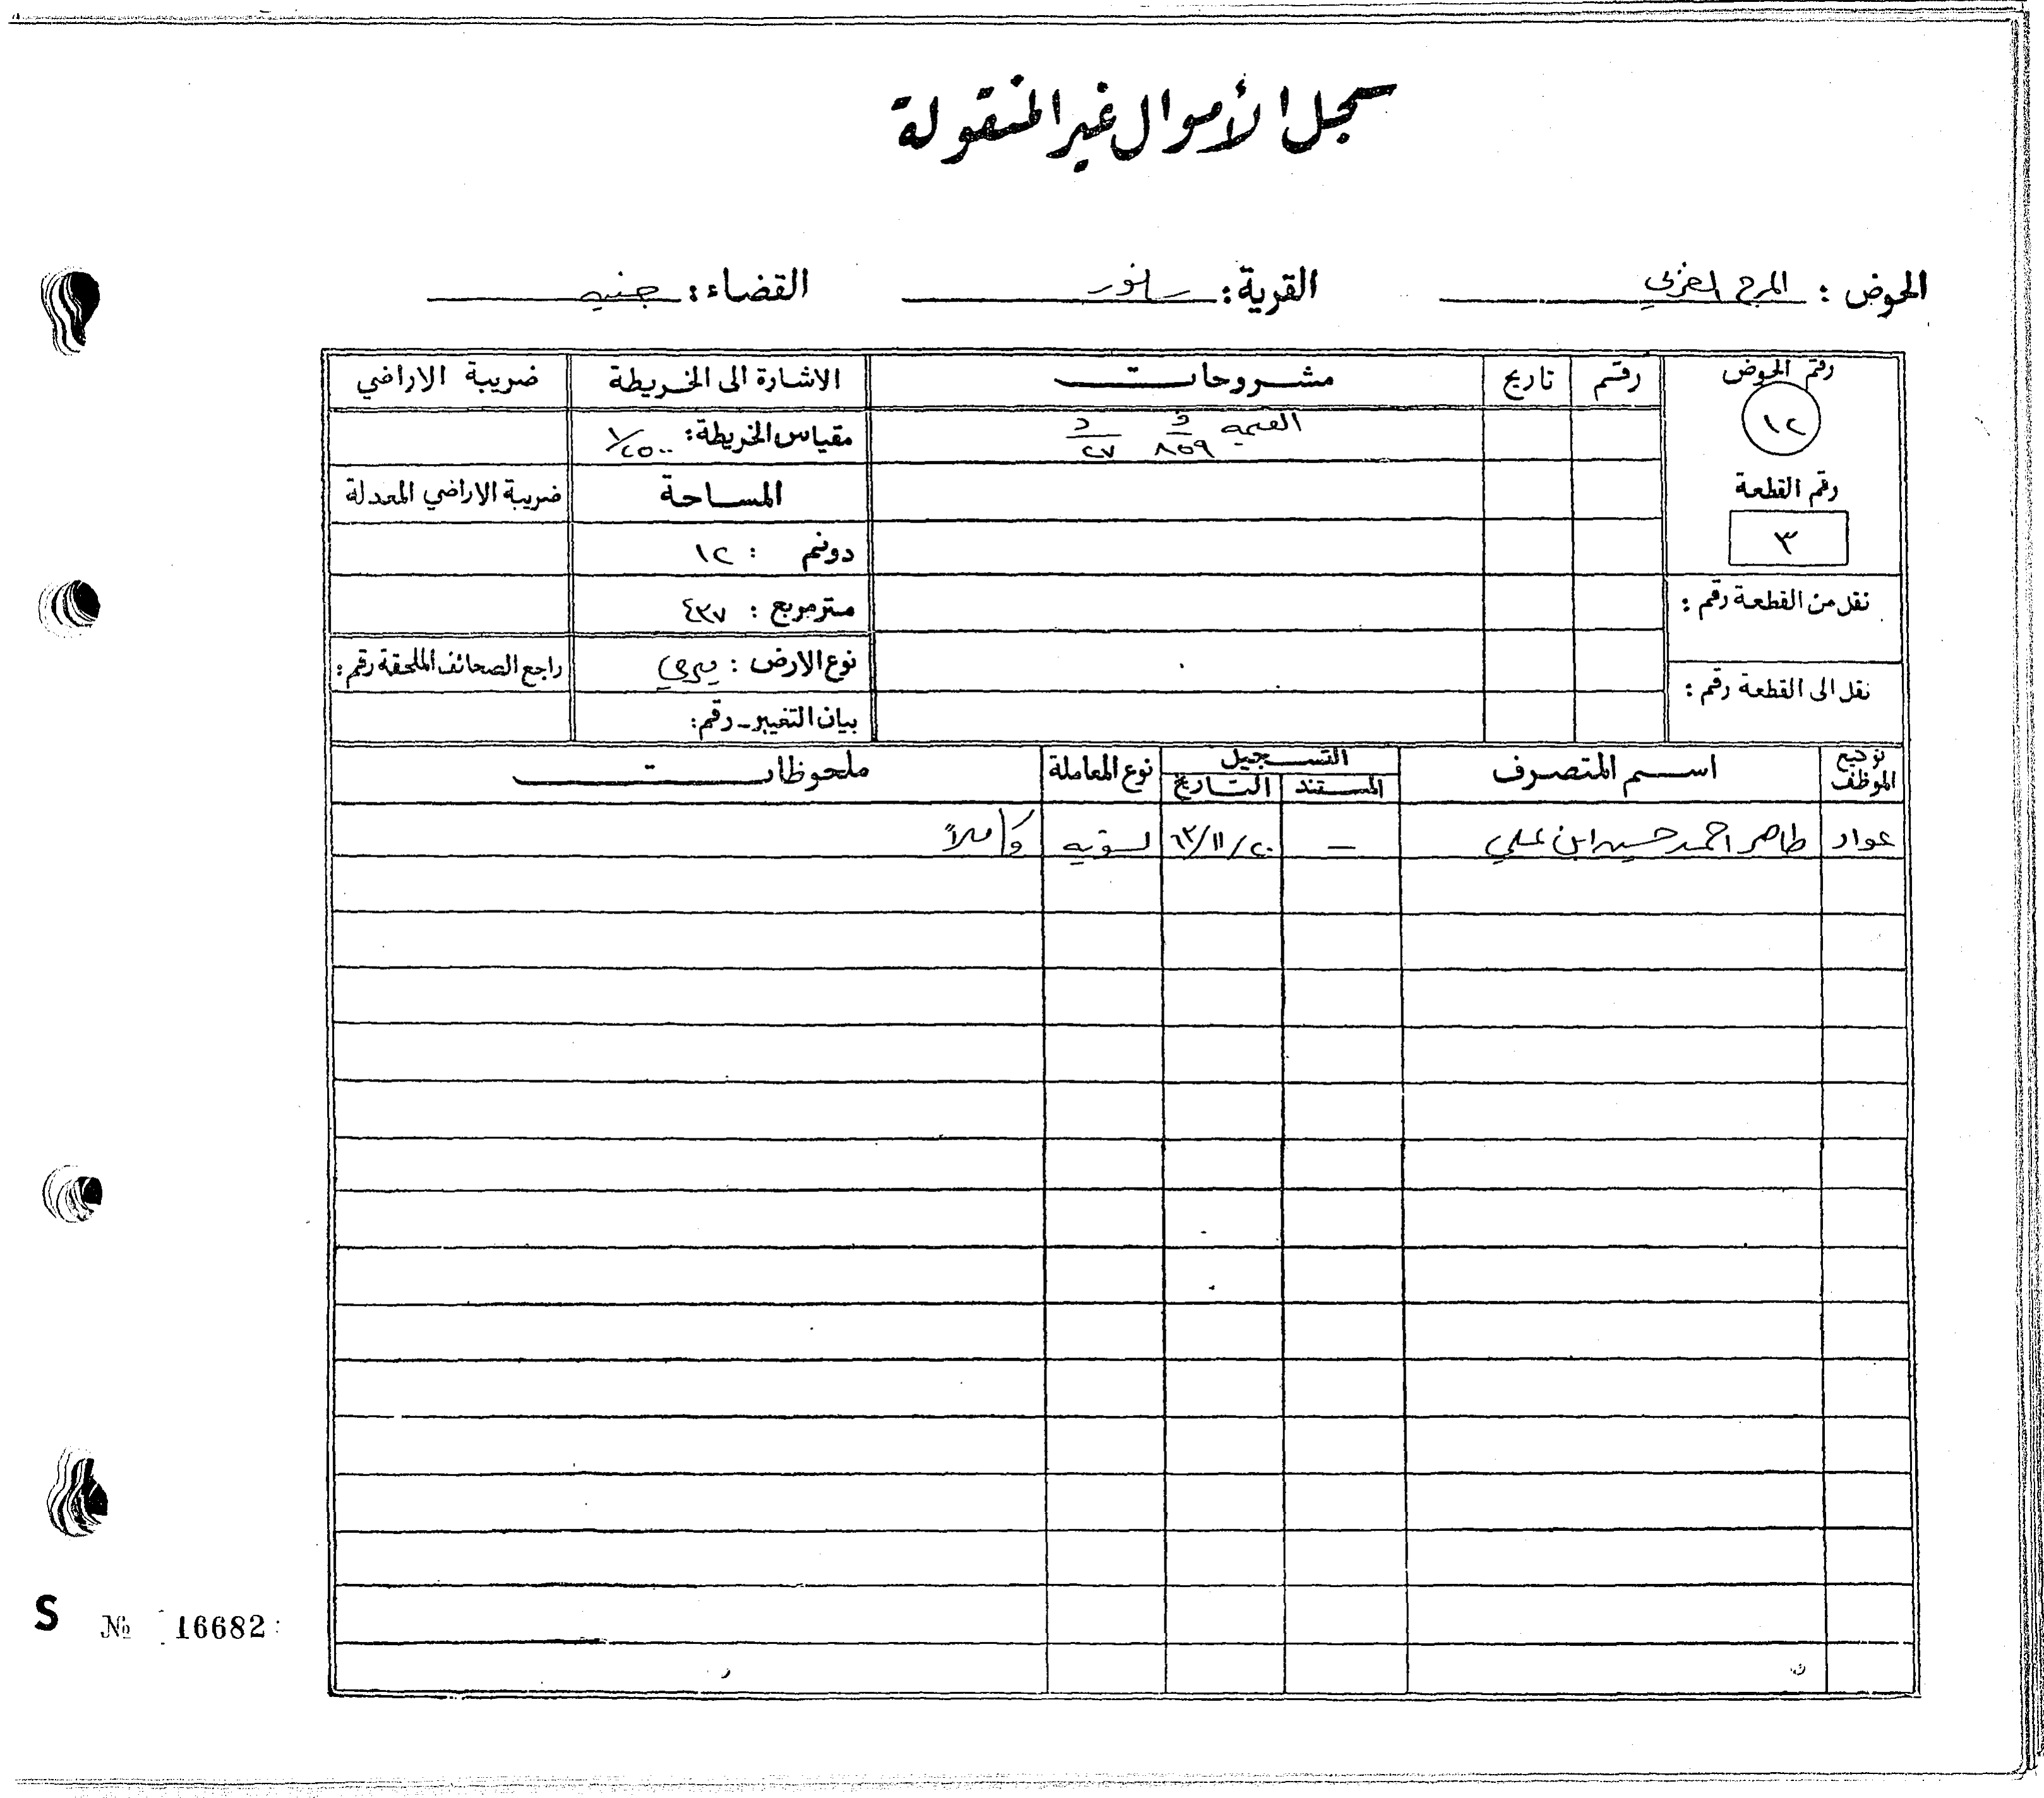 سجل الأموال غير المنقولة
الحوض : المرج الغربي القرية : سانور القضاء : جنين
رقم الحوض رقم تاريخ مشروحات الاشارة الى الخريطة ضريبة الاراضي
١٢ القيمة ف ٨٥٩ د ٢٧ مقياس الخريطة : ١/٢٥٠٠
رقم القطعة المساحة ضريبة الاراضي المعدلة
٣ دونم : ١٢
نقل من القطعة رقم : متر مربع : ٤٣٧
نوع الارض : ميري راجع الصحائف الملحقة رقم :
نقل الى القطعة رقم : بيان التغيير - رقم :
توقيع الموظف اسم المتصرف التسجيل نوع المعاملة ملحوظات
المستند التاريخ
عواد طاهر احمد حسين ابن علي — ٢٠/١١/٦٣ تسوية كاملاً
S № 16682